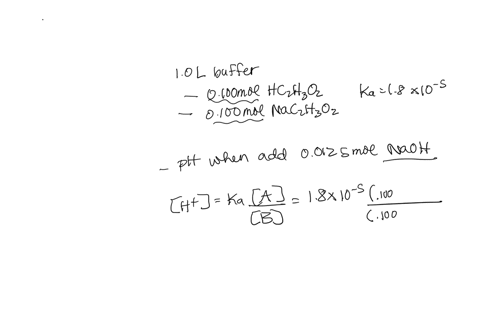 1.0L buffer
— 0.100mol HC₂H₃O₂ Ka=1.8 x10⁻⁵
— 0.100mol NaC₂H₃O₂
— pH when add 0.0125mol NaOH
[H⁺] = Ka [A]/[B] = 1.8x10⁻⁵ (.100/(.100